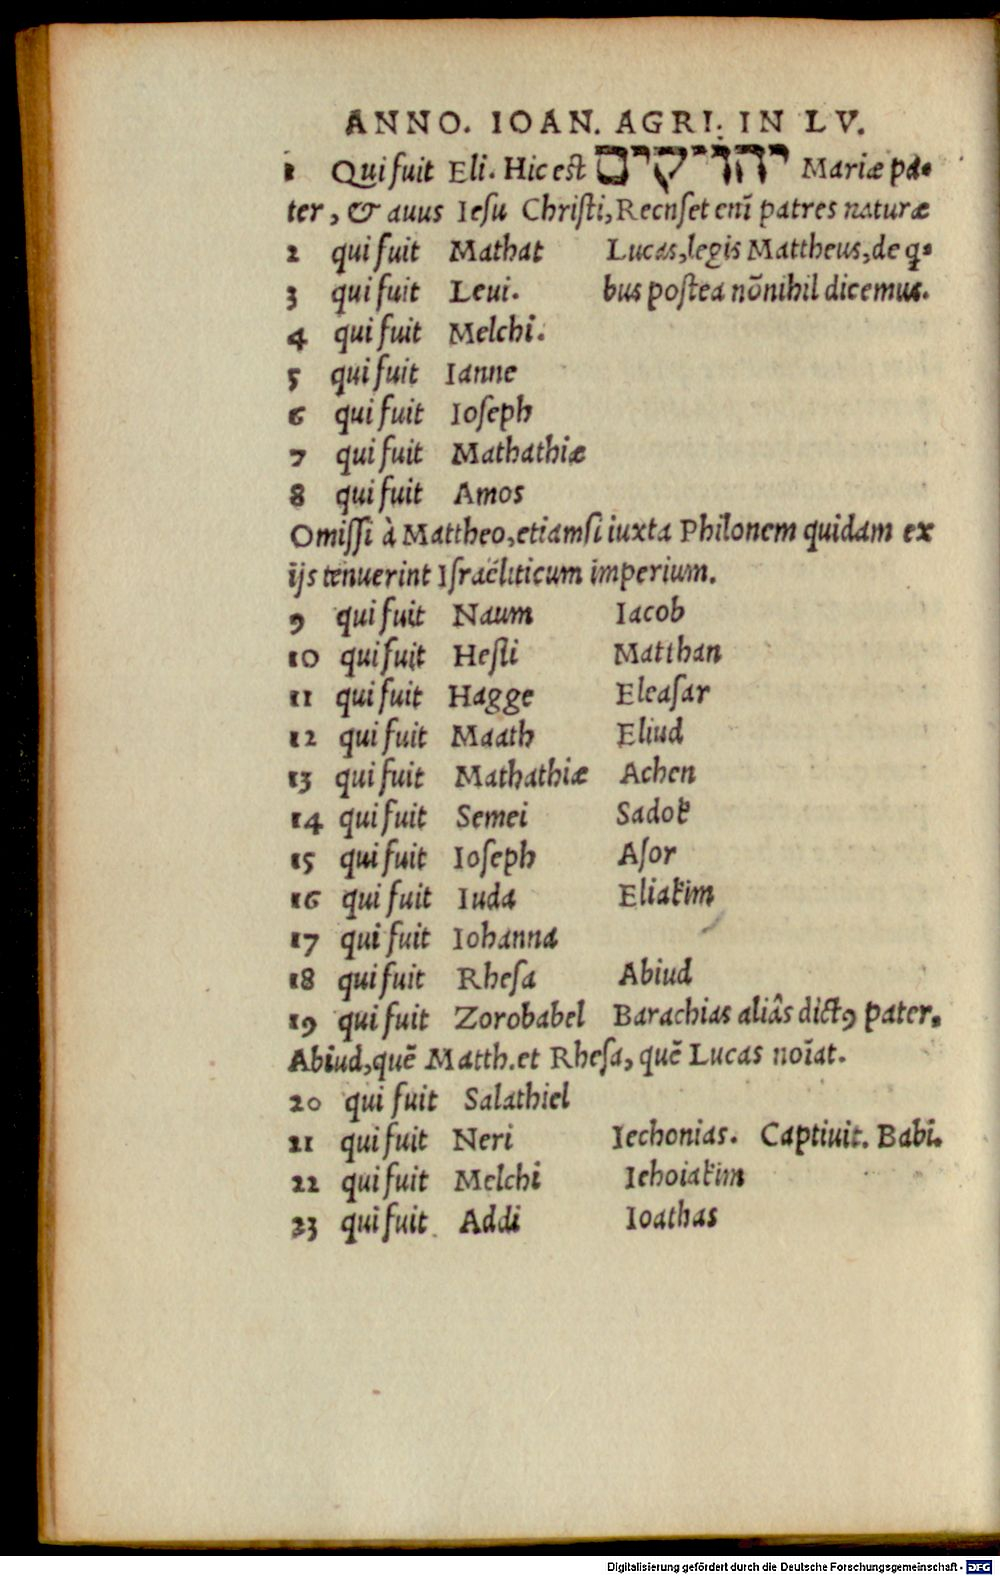 ANNO. IOAN. AGRI. IN LV.
1 Qui fuit Eli. Hic est יהויקים Mariæ pa-
ter, & auus Iesu Christi, Recnset enī patres naturæ
2 qui fuit Mathat Lucas, legis Mattheus, de q̄-
3 qui fuit Leui. bus postea nōnihil dicemus.
4 qui fuit Melchi.
5 qui fuit Ianne
6 qui fuit Ioseph
7 qui fuit Mathathiæ
8 qui fuit Amos
Omissi à Mattheo, etiamsi iuxta Philonem quidam ex
ijs tenuerint Israëliticum imperium.
9 qui fuit Naum Iacob
10 qui fuit Hesli Matthan
11 qui fuit Hagge Eleasar
12 qui fuit Maath Eliud
13 qui fuit Mathathiæ Achen
14 qui fuit Semei Sadok
15 qui fuit Ioseph Asor
16 qui fuit Iuda Eliakim
17 qui fuit Iohanna
18 qui fuit Rhesa Abiud
19 qui fuit Zorobabel Barachias aliâs dictꝰ pater.
Abiud, quē Matth. et Rhesa, quē Lucas noīat.
20 qui fuit Salathiel
21 qui fuit Neri Iechonias. Captiuit. Babi.
22 qui fuit Melchi Iehoiakim
23 qui fuit Addi Ioathas
Digitalisierung gefördert durch die Deutsche Forschungsgemeinschaft - DFG